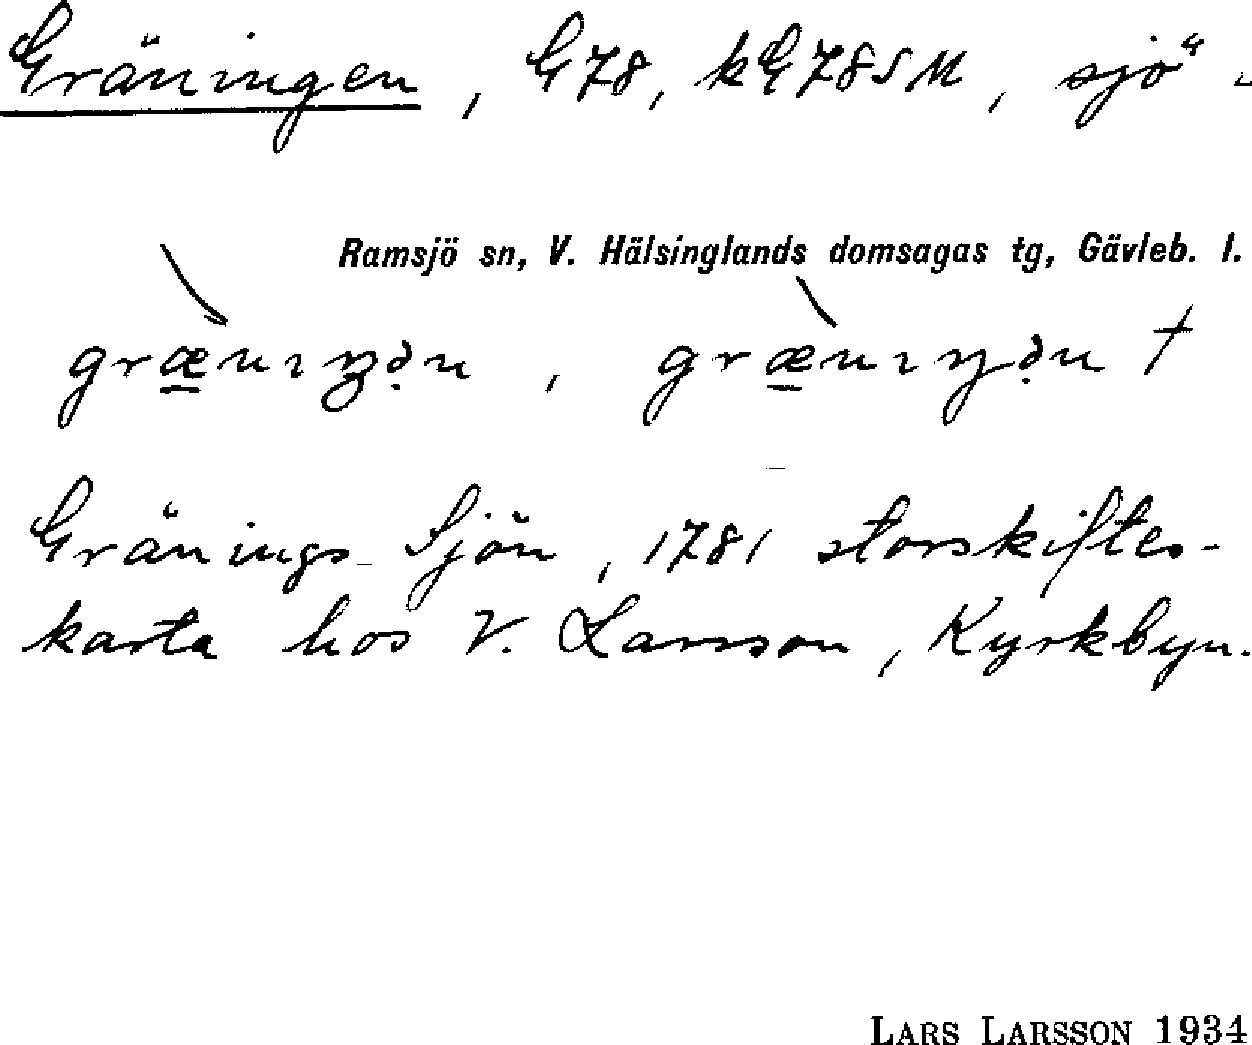 Gräningen, G78, kG78SM, sjö -
Ramsjö sn, V. Hälsinglands domsagas tg, Gävleb. l.
græ̱nɪŋən, græ̱nɪŋən †
Gränings Sjön, 1781 storskiftes-
karta hos V. Larsson, Kyrkbyn.
LARS LARSSON 1934